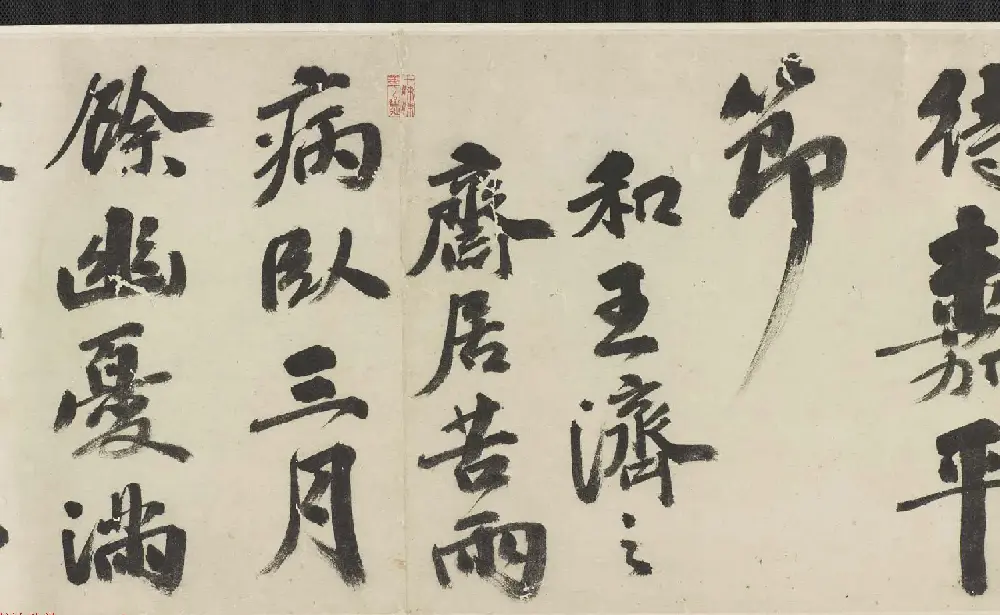 待嘉平
節
和王濟之
齋居苦雨
病臥三月
餘幽憂滿